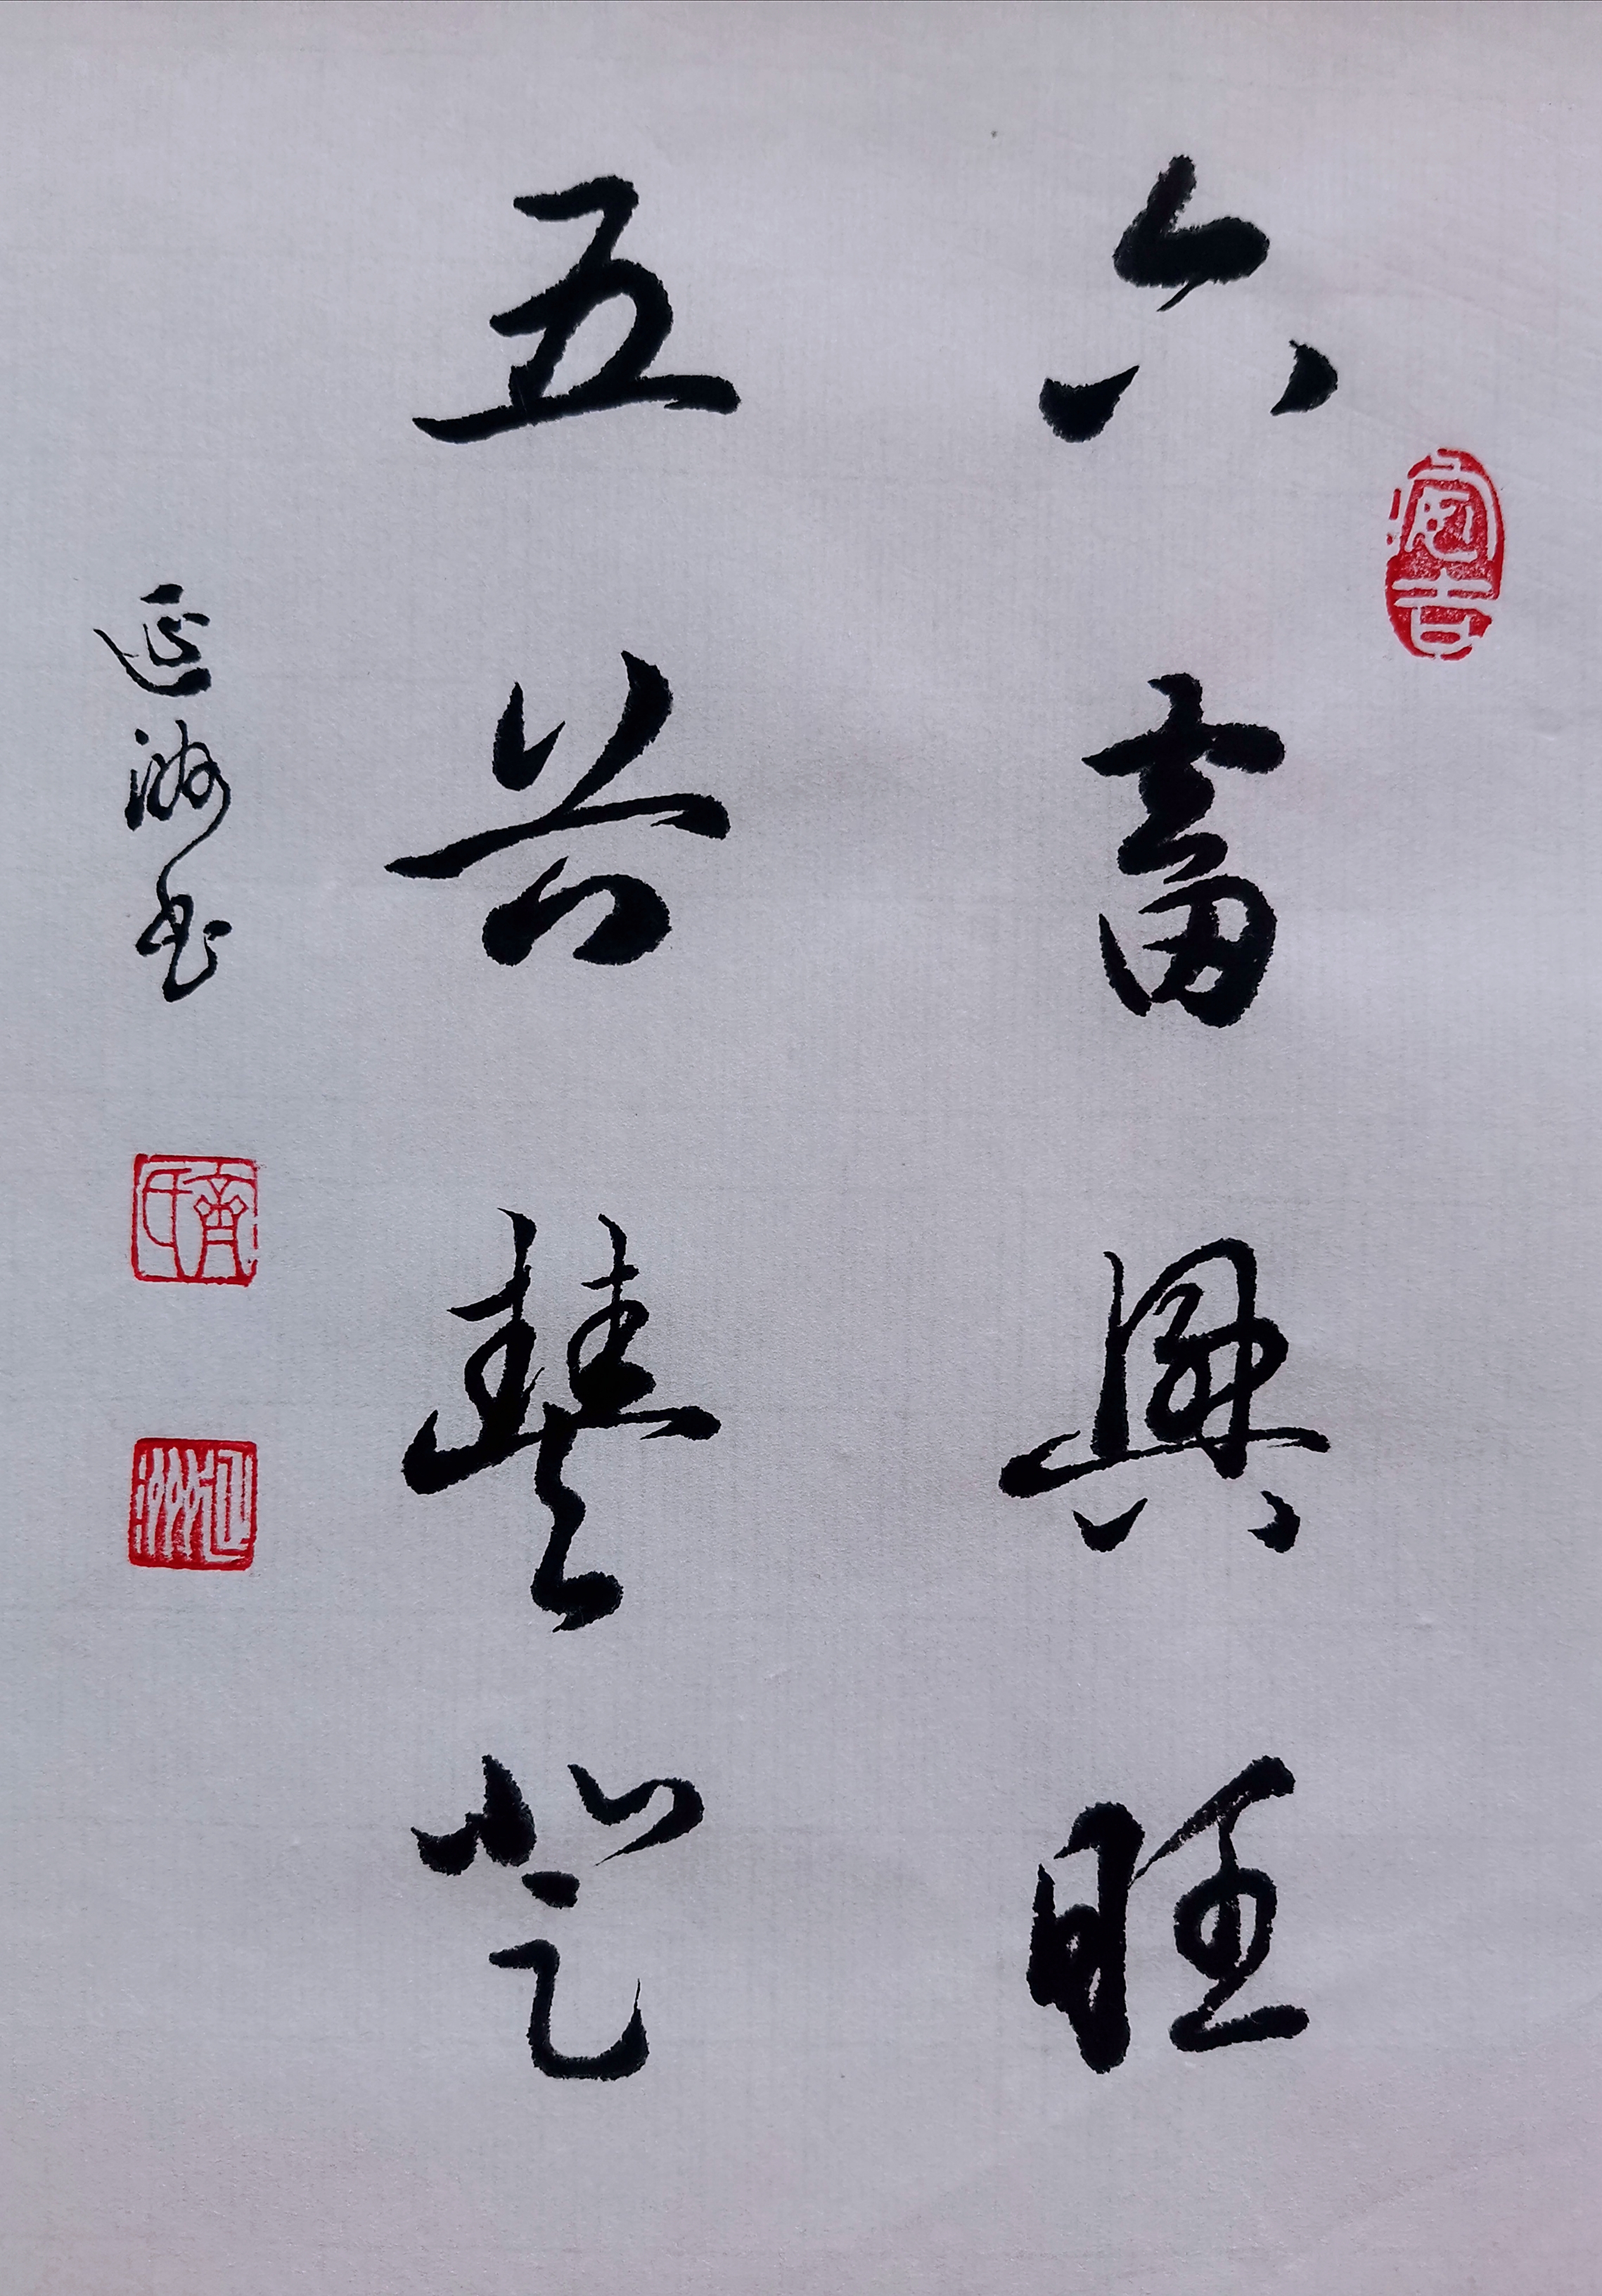 六畜興旺
五谷豐登
延洲书